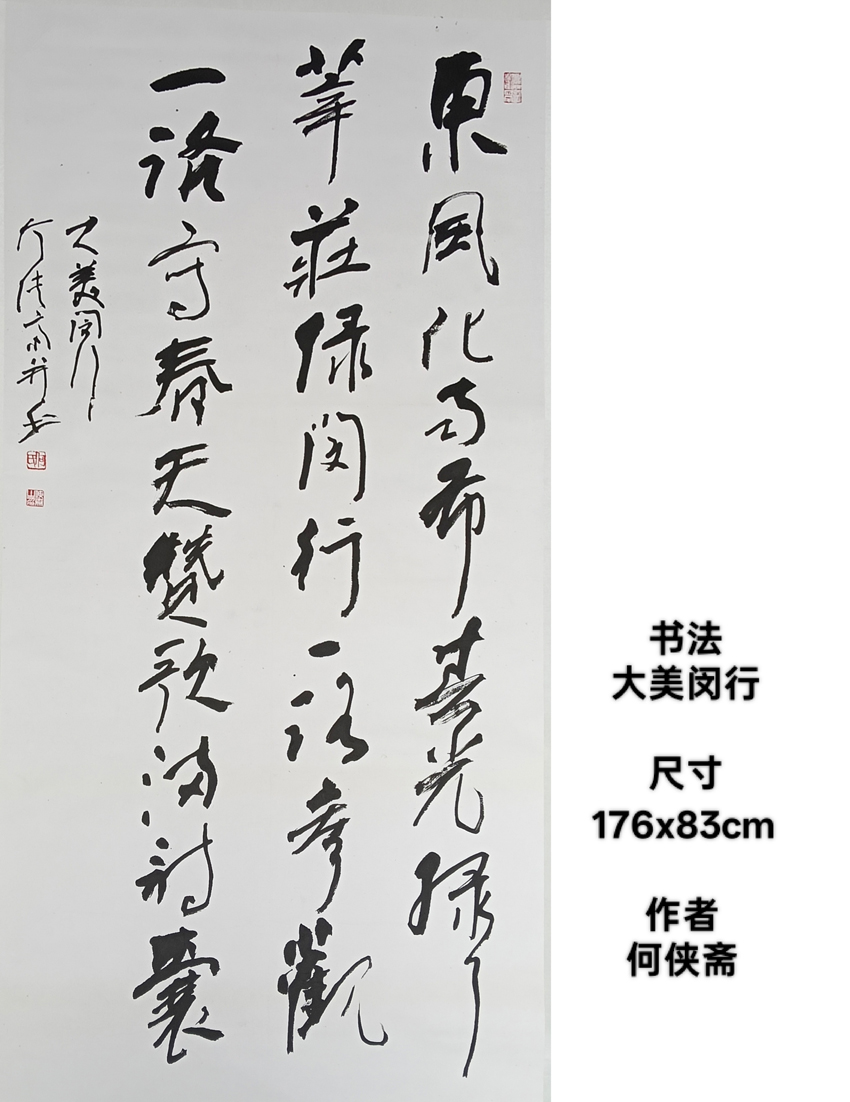 東風化雨布春光緑了
華莊緑閔行一路參觀
一路寫春天贊歌滿詩囊
大美閔行
何侠斋并书
书法
大美闵行
尺寸
176x83cm
作者
何侠斋